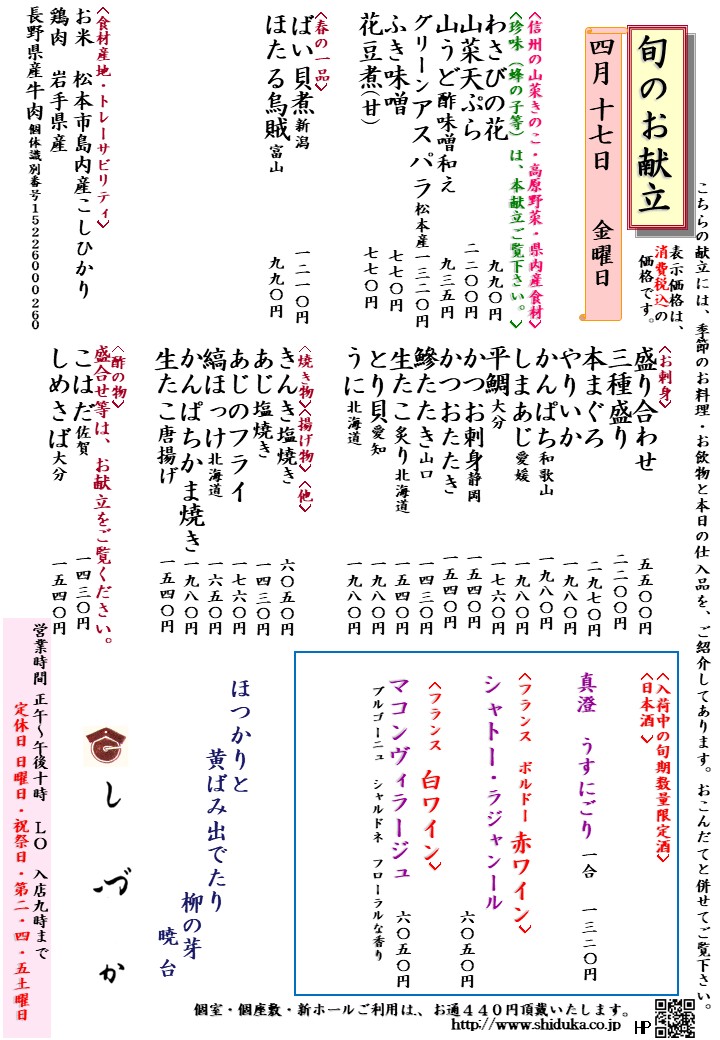 こちらの献立には、季節のお料理・お飲物と本日の仕入品を、ご紹介してあります。おこんだてと併せてご覧下さい。
旬のお献立
表示価格は、
消費税込の
価格です。
四月十七日 金曜日
〈信州の山菜きのこ・高原野菜・県内産食材〉
〈珍味（蜂の子等）は、本献立ご覧下さい。〉
わさびの花 九九〇円
山菜天ぷら 二二〇〇円
山うど酢味噌和え 九三五円
グリーンアスパラ松本産 一三二〇円
ふき味噌 七七〇円
花豆煮（甘） 七七〇円
〈春の一品〉
ばい貝煮 新潟 一二一〇円
ほたる烏賊 富山 九九〇円
〈食材産地・トレーサビリティ〉
お米 松本市島内産こしひかり
鶏肉 岩手県産
長野県産牛肉 個体識別番号1522600260
〈お刺身〉
盛り合わせ 五五〇〇円
三種盛り 二二〇〇円
本まぐろ 二九七〇円
やりいか 一九八〇円
かんぱち和歌山 一九八〇円
しまあじ愛媛 一九八〇円
平鯛 大分 一七六〇円
かつお刺身静岡 一五四〇円
かつおたたき 一五四〇円
鯵たたき山口 一四三〇円
生たこ炙り北海道 一五四〇円
とり貝愛知 一九八〇円
うに北海道 一九八〇円
〈焼き物〉〈揚げ物〉〈他〉
きんき塩焼き 六〇五〇円
あじ塩焼き 一四三〇円
あじのフライ 一七六〇円
縞ほっけ北海道 一六五〇円
かんぱちかま焼き 一九八〇円
生たこ唐揚げ 一五四〇円
〈酢の物〉
盛合せ等は、お献立をご覧ください。
こはだ佐賀 一四三〇円
しめさば大分 一五四〇円
〈入荷中の旬期数量限定酒〉
〈日本酒〉
真澄 うすにごり 一合 一三二〇円
〈フランス ボルドー 赤ワイン〉
シャトー・ラジャンール 六〇五〇円
〈フランス 白ワイン〉
マコンヴィラージュ 六〇五〇円
ブルゴーニュ シャルドネ フローラルな香り
ほつかりと
黄ばみ出でたり
柳の芽
暁台
しづか
営業時間 正午〜午後十時 LO 入店九時まで
定休日 日曜日・祝祭日・第二・四・五土曜日
個室・個座敷・新ホールご利用は、お通440円頂戴いたします。
http://www.shiduka.co.jp HP